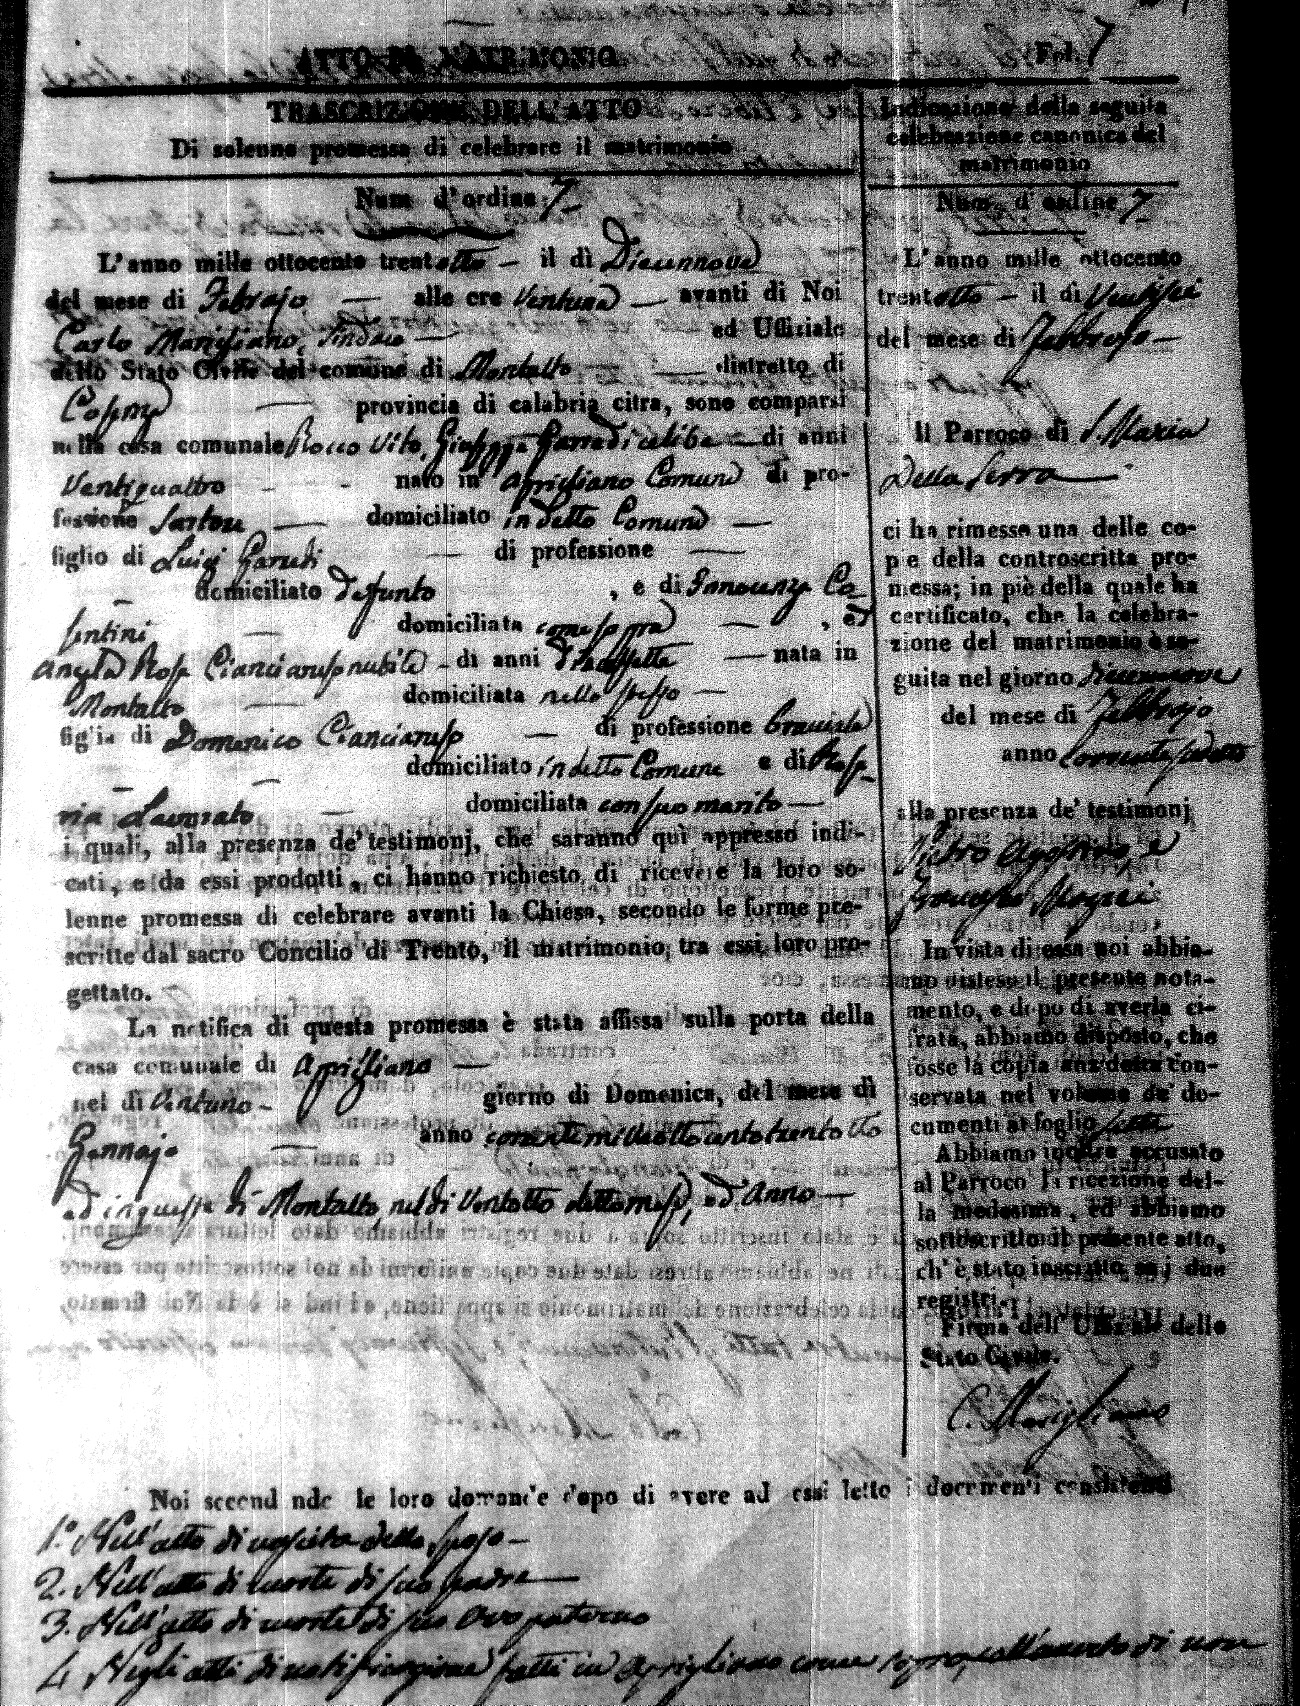 ATTO DI MATRIMONIO Fol. 7
TRASCRIZIONE DELL'ATTO
Di solenne promessa di celebrare il matrimonio
Num d'ordine 7
L'anno mille ottocento trentotto — il dì Diecinnove
del mese di Febrajo — alle ore Ventuna — avanti di Noi
Carlo Marigliano, Sindaco — ed Uffiziale
dello Stato Civile del comune di Montalto — distretto di
— provincia di calabria citra, sono comparsi
nella casa comunale Rocco Vito, Giuseppe celibe — di anni
Ventiquattro nato in Aprigliano Comune di pro-
fessione Sartore — domiciliato in detto Comune —
figlio di Luigi — di professione —
domiciliato defunto , e di
— domiciliata come sopra — , ed
Angela Rosa Cianciaruso nubile - di anni — nata in
Montalto — domiciliata nello stesso —
figlia di Domenico Cianciaruso — di professione
domiciliato in detto Comune e di Rosa-
ria Lavorato — domiciliata con suo marito —
i quali, alla presenza de' testimonj, che saranno quì appresso indi-
cati, e da essi prodotti, ci hanno richiesto di ricevere la loro so-
lenne promessa di celebrare avanti la Chiesa, secondo le forme pre-
scritte dal sacro Concilio di Trento, il matrimonio, tra essi loro pro-
gettato.
La notifica di questa promessa è stata affissa sulla porta della
casa comunale di Aprigliano —
nel dì Ventuno - giorno di Domenica, del mese di
Gennajo — anno corrente mille ottocento trentotto
ed in questa di Montalto nel dì Ventotto detto mese, ed Anno —
Indicazione della seguita
celebrazione canonica del
matrimonio
Num. d'ordine 7
L'anno mille ottocento
trentotto — il dì Ventisei
del mese di Febbrajo —
Il Parroco di S. Maria
Della Serra —
ci ha rimesso una delle co-
pie della controscritta pro-
messa; in piè della quale ha
certificato, che la celebra-
zione del matrimonio è se-
guita nel giorno diecinnove
del mese di Febbrajo
anno corrente
alla presenza de' testimonj
Pietro Agostino, e
In vista di essa noi abbia-
mo disteso il presente nota-
mento, e dopo di averla ci-
frata, abbiamo disposto, che
fosse la copia anzidetta con-
servata nel volume de' do-
cumenti al foglio sette
Abbiamo inoltre accusato
al Parroco la ricezione del-
la medesima, ed abbiamo
sottoscritto il presente atto,
ch'è stato inscritto su i due
registri.
Firma dell'Uffiziale dello
Stato Civile.
C. Marigliano
Noi secondando le loro domande dopo di avere ad essi letto i documenti consistenti
1.° Nell'atto di nascita dello Sposo —
2. Nell'atto di morte di suo padre —
3. Nell'atto di morte di suo Avo paterno
4. Negli atti di notificazione fatti in Aprigliano come sopra, di non